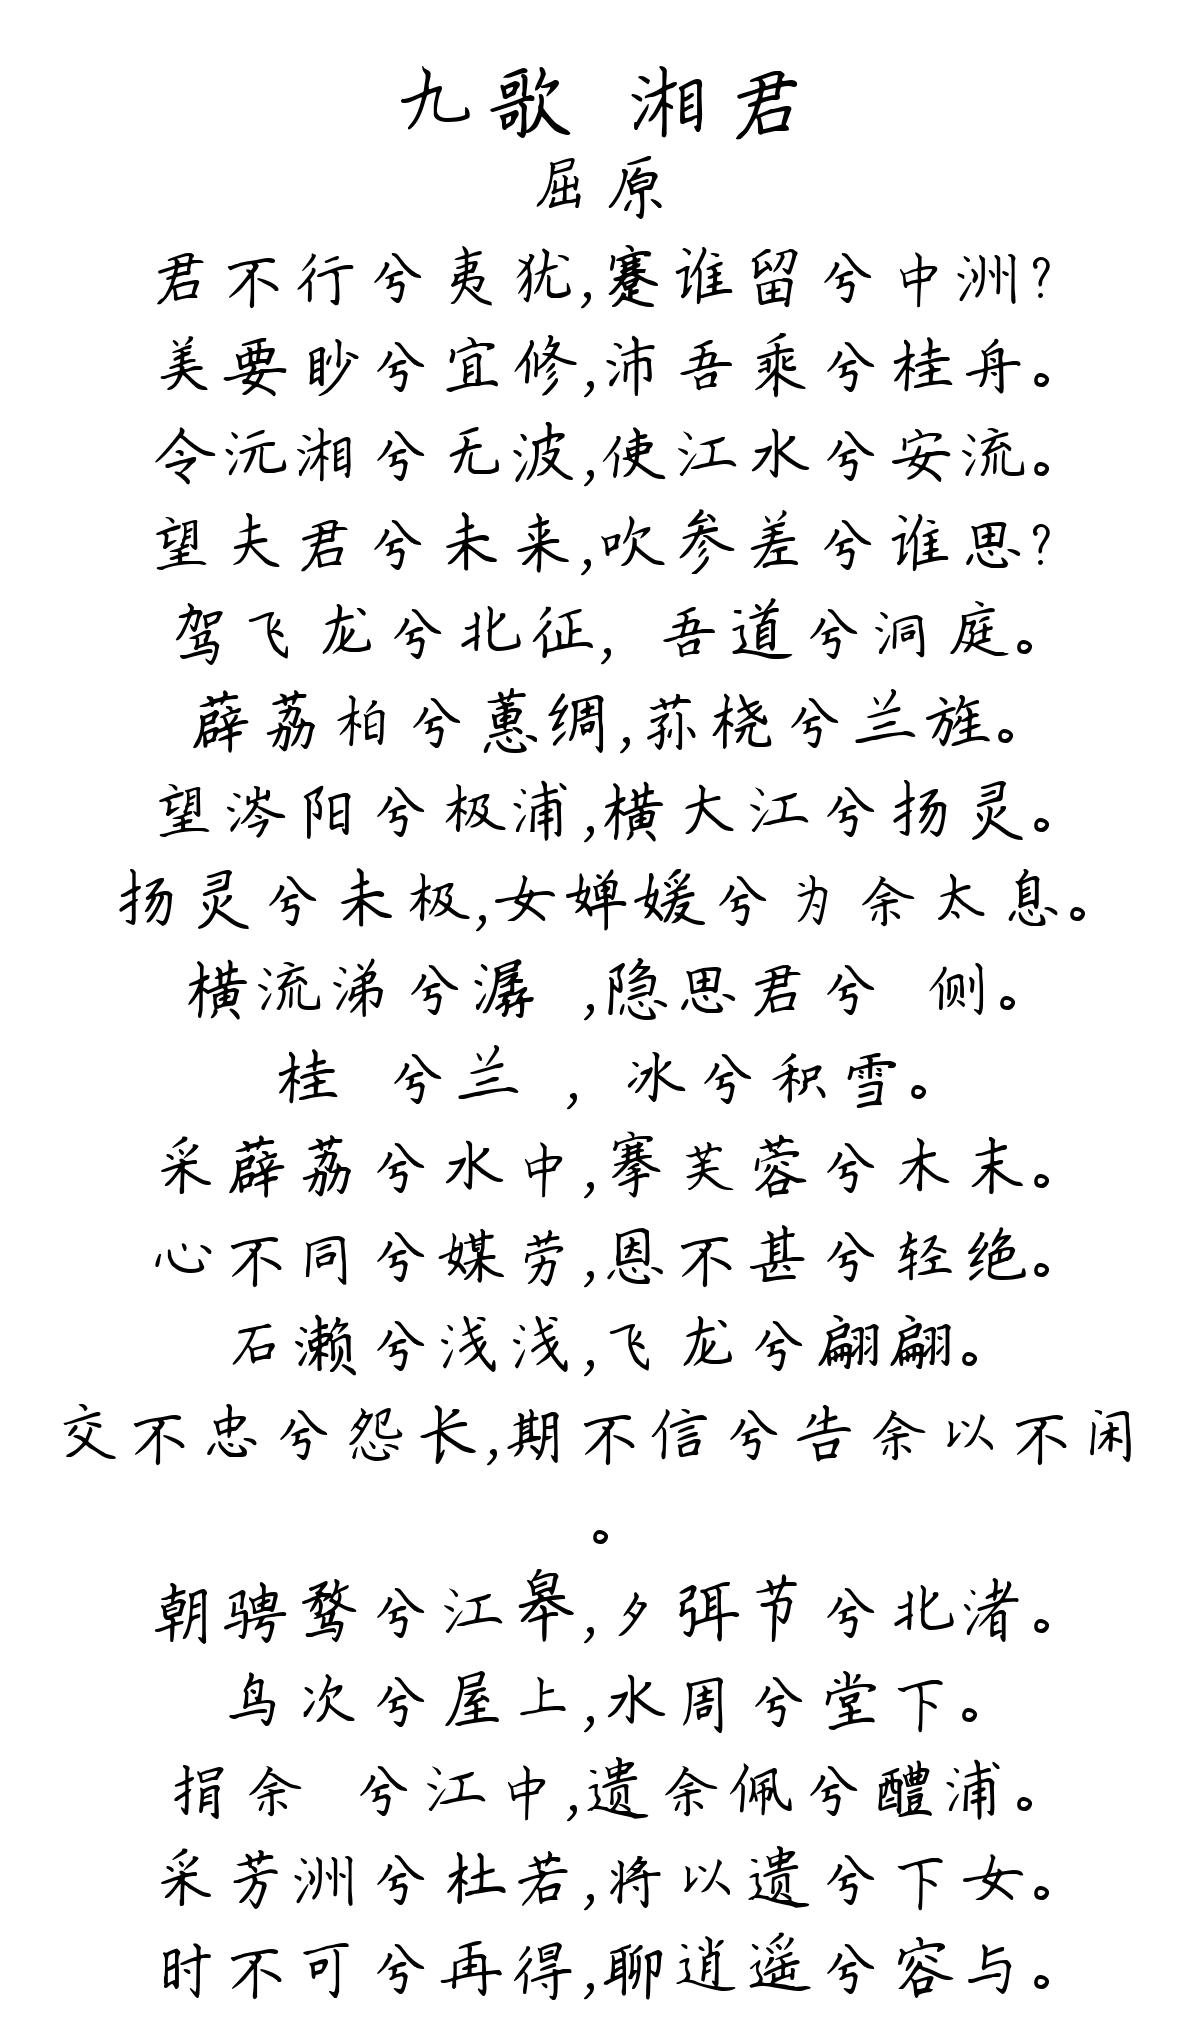 九歌 湘君
屈原
君不行兮夷犹,蹇谁留兮中洲?
美要眇兮宜修,沛吾乘兮桂舟。
令沅湘兮无波,使江水兮安流。
望夫君兮未来,吹参差兮谁思?
驾飞龙兮北征, 吾道兮洞庭。
薜荔柏兮蕙绸,荪桡兮兰旌。
望涔阳兮极浦,横大江兮扬灵。
扬灵兮未极,女婵媛兮为余太息。
横流涕兮潺 ,隐思君兮 侧。
桂 兮兰 , 冰兮积雪。
采薜荔兮水中,搴芙蓉兮木末。
心不同兮媒劳,恩不甚兮轻绝。
石濑兮浅浅,飞龙兮翩翩。
交不忠兮怨长,期不信兮告余以不闲
。
朝骋鹜兮江皋,夕弭节兮北渚。
鸟次兮屋上,水周兮堂下。
捐余 兮江中,遗余佩兮醴浦。
采芳洲兮杜若,将以遗兮下女。
时不可兮再得,聊逍遥兮容与。